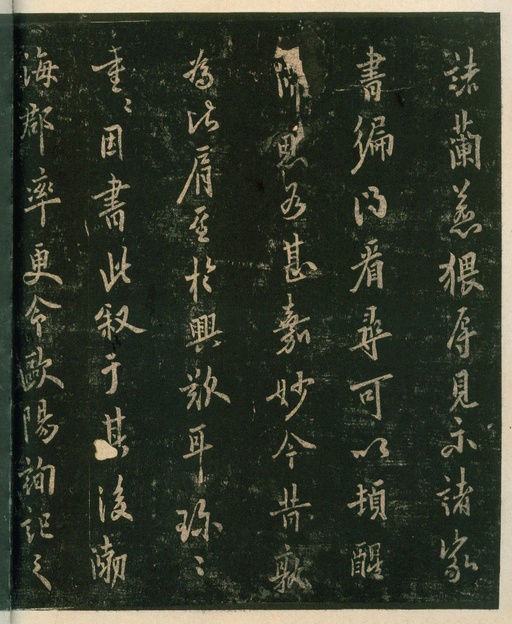 蘭惹猥辱見示諸家
書編得看尋可以頓醒
思甚嘉妙今昔孰
為比肩至於興歎耳珎〻
重〻因書此叙于其後渤
海郡率更令歐陽詢記之